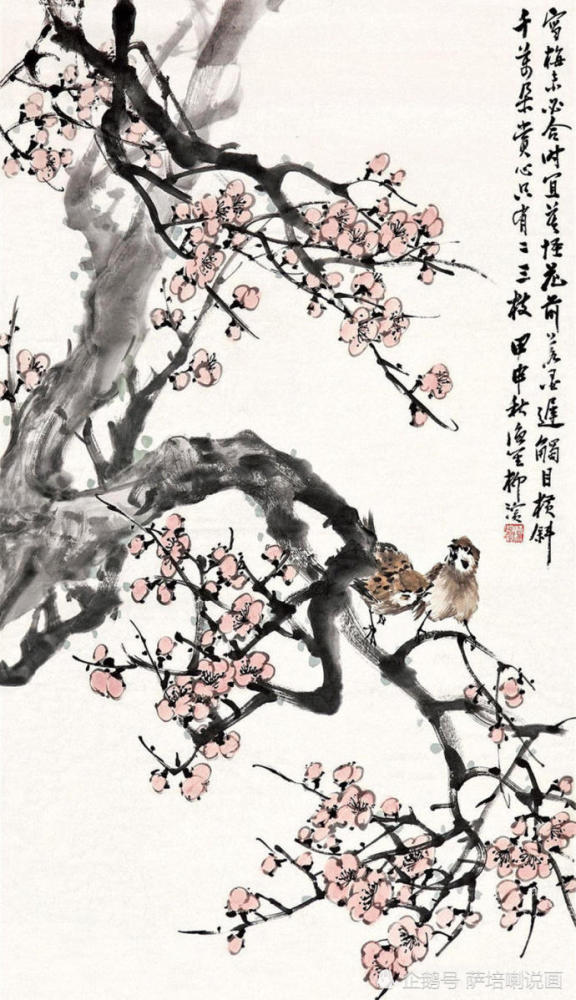 寫梅未必合时宜莫怪花前落墨遲觸目横斜
千萬朵賞心只有二三枝 甲申秋
企鹅号 萨培喇说画